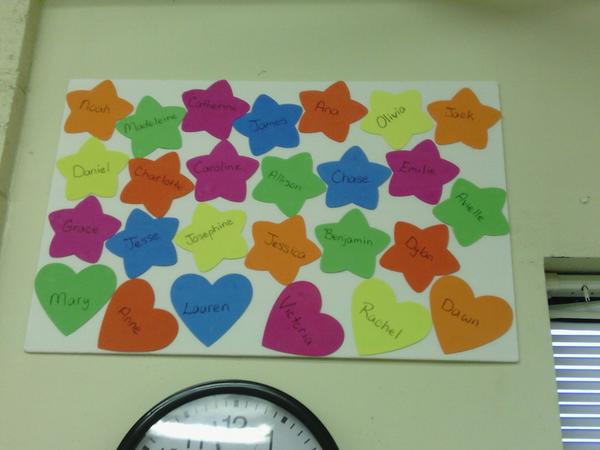 Noah
Madeleine
Catherine
James
Ana
Olivia
Jack
Daniel
Charlotte
Caroline
Allison
Chase
Emilie
Arielle
Grace
Jesse
Josephine
Jessica
Benjamin
Dylan
Mary
Anne
Lauren
Victoria
Rachel
Dawn
12